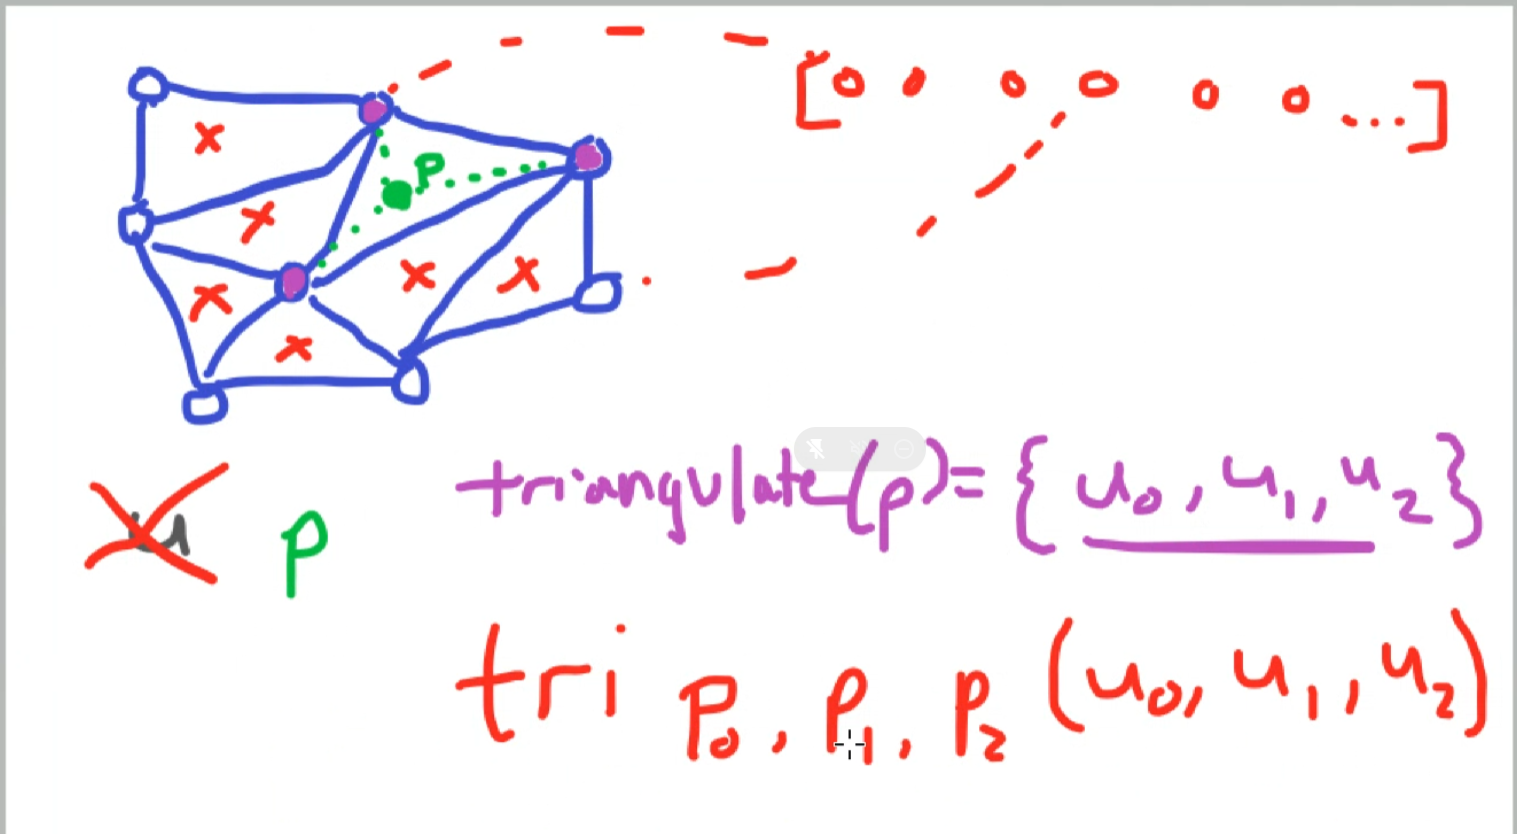 [0 0 0 0 0 0 ...]
x
P
x
x x x
x
triangulate(p) = {u₀, u₁, u₂}
u p
tri p₀, p₁, p₂ (u₀, u₁, u₂)